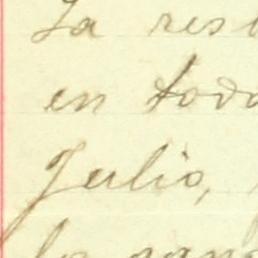 La res
en todo
Julio,
la